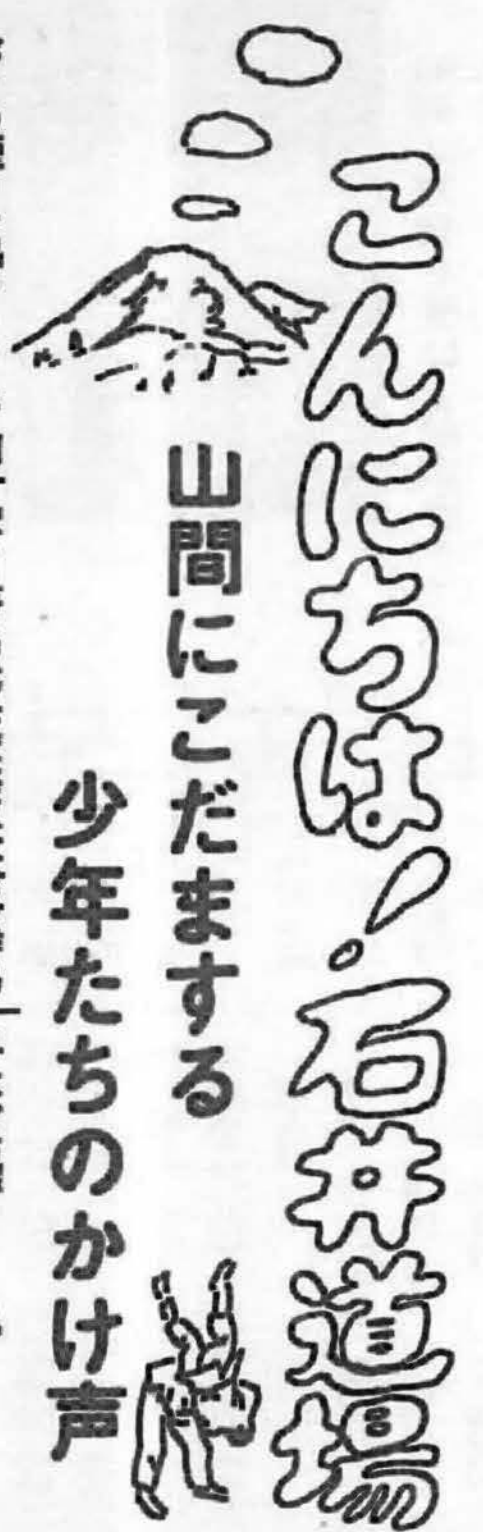 こんにちは！石井道場
山間にこだまする
少年たちのかけ声